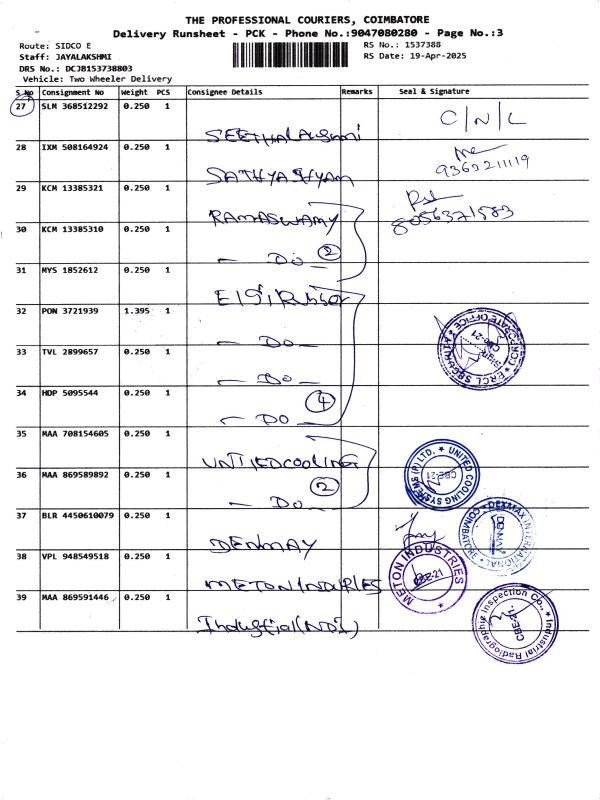 THE PROFESSIONAL COURIERS, COIMBATORE
Delivery Runsheet - PCK - Phone No.:9047080280 - Page No.:3
Route: SIDCO E
RS No.: 1537388
Staff: JAYALAKSHMI
RS Date: 19-Apr-2025
DRS No.: DCJ8153738803
Vehicle: Two Wheeler Delivery
S No Consignment No Weight PCS Consignee Details Remarks Seal & Signature
27 SLM 368512292 0.250 1
SEETHALAkshmi C/N/L
28 IXM 508164924 0.250 1
SATHYA SHYAM 9363211119
29 KCM 13385321 0.250 1
RAMASWAMY 8056371583
30 KCM 13385310 0.250 1
- Do - 2
31 MYS 1852612 0.250 1
ElGi Rubber
32 PON 3721939 1.395 1
- Do -
33 TVL 2899657 0.250 1
- Do -
34 HDP 5095544 0.250 1
- Do - 4
35 MAA 708154605 0.250 1
UNTIEDCOOLING
36 MAA 869589892 0.250 1
- Do - 2
UNITED COOLING SYSTEMS (P) LTD. CBE-21
37 BLR 4450610079 0.250 1
DEXMAX INTERNATIONAL COIMBATORE
38 VPL 948549518 0.250 1
METON INDURIES
METON INDUSTRIES CBE-21
39 MAA 869591446 0.250 1
Industrial(NDI)
Industrial Radiography Inspection Co., CBE-21.